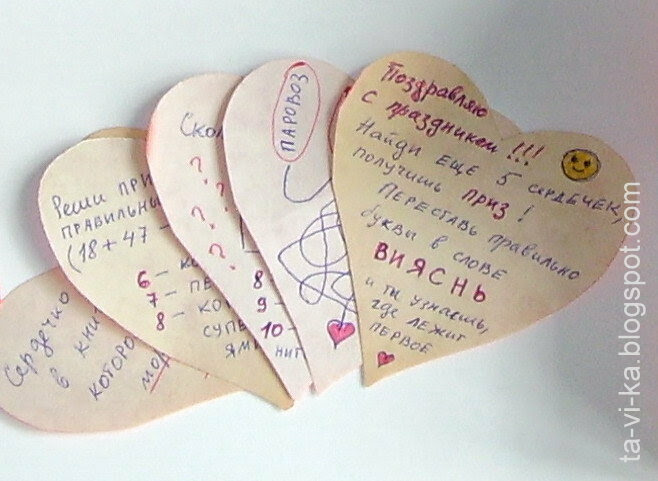 Поздравляю
с праздником!!!
Найди еще 5 сердечек,
получишь приз!
Переставь правильно
буквы в слове
ВИЯСНЬ
и ты узнаешь,
где лежит
первое
ПАРОВОЗ
8
9
10 –
Ско
? ?
? ?
? ?
Реши при
правильны
(18 + 47 –
6 – к
7 – пе
8 – ко
супе
ями
нит
Сердечко
в кни
которо
мор
ta-vi-ka.blogspot.com